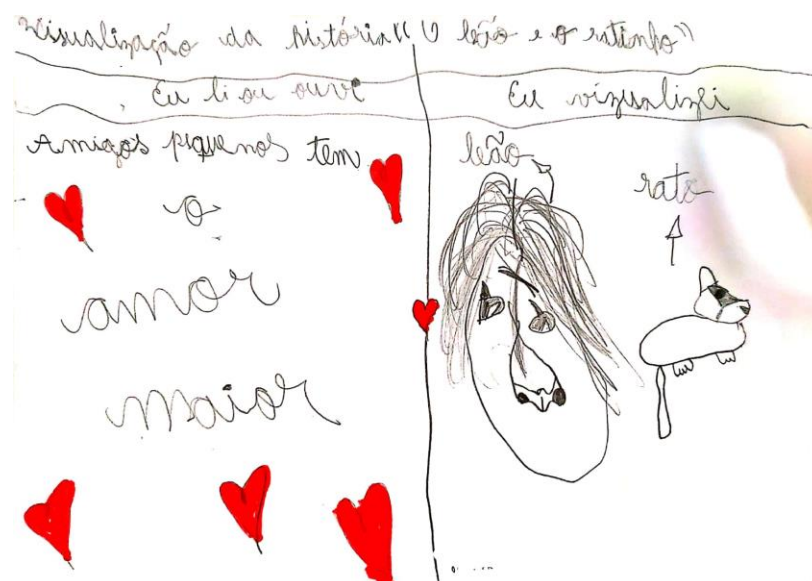 Visualização da história "O leão e o ratinho"
Eu li ou ouvi
Amigos piquenos tem
o
amor
maior
Eu vizualizei
leão
rato